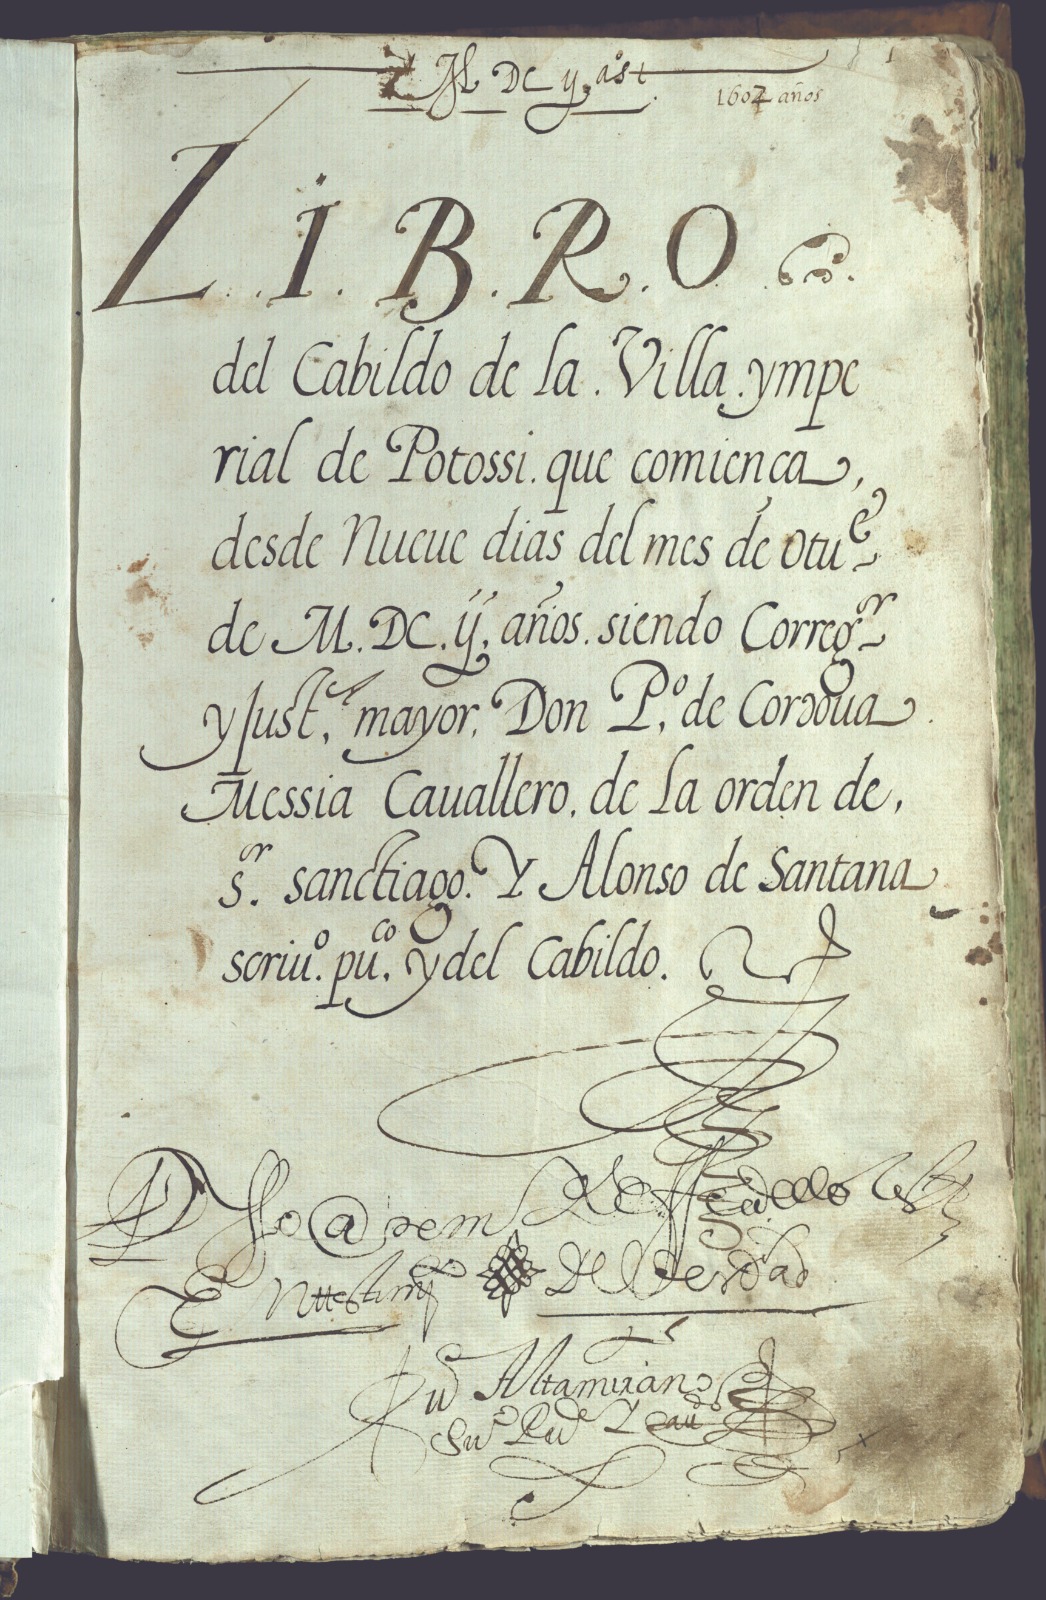 M DC y
1602 años
L.I.B.R.O.
del Cabildo de la Villa ympe
rial de Potossi. que comiença,
desde Nueue dias del mes de otue
de M.DC.ij. años. siendo Corregor
y Justa. mayor. Don P.o de Cordoua
Messia Cauallero. de la orden de,
sr. sanctiago. Y Alonso de Santana
scriuo. puco. y del Cabildo.
En testimo De Verdad
Altamirano